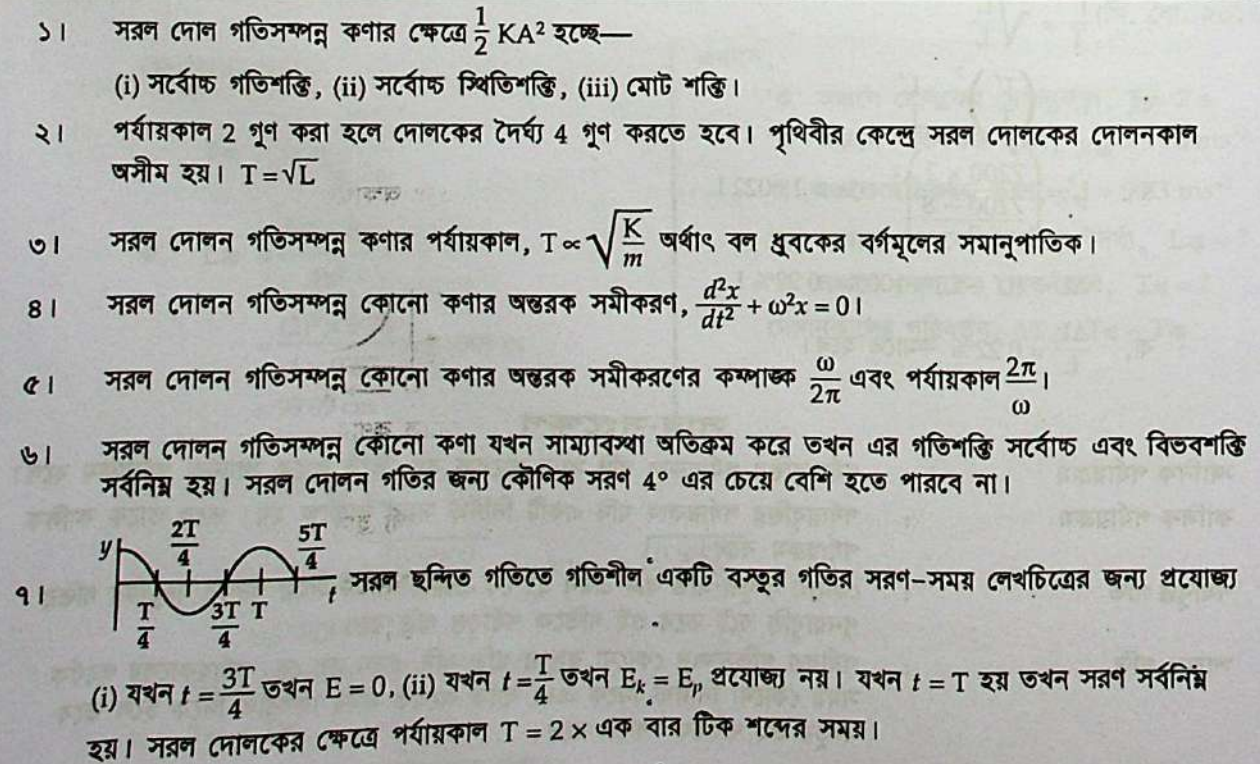 ১। সরল দোল গতিসম্পন্ন কণার ক্ষেত্রে 1/2 KA² হচ্ছে—
(i) সর্বোচ্চ গতিশক্তি, (ii) সর্বোচ্চ স্থিতিশক্তি, (iii) মোট শক্তি।
২। পর্যায়কাল 2 গুণ করা হলে দোলকের দৈর্ঘ্য 4 গুণ করতে হবে। পৃথিবীর কেন্দ্রে সরল দোলকের দোলনকাল
অসীম হয়। T = √L
৩। সরল দোলন গতিসম্পন্ন কণার পর্যায়কাল, T ∝ √(K/m) অর্থাৎ বল ধ্রুবকের বর্গমূলের সমানুপাতিক।
৪। সরল দোলন গতিসম্পন্ন কোনো কণার অন্তরক সমীকরণ, d²x/dt² + ω²x = 0।
৫। সরল দোলন গতিসম্পন্ন কোনো কণার অন্তরক সমীকরণের কম্পাঙ্ক ω/2π এবং পর্যায়কাল 2π/ω।
৬। সরল দোলন গতিসম্পন্ন কোনো কণা যখন সাম্যাবস্থা অতিক্রম করে তখন এর গতিশক্তি সর্বোচ্চ এবং বিভবশক্তি
সর্বনিম্ন হয়। সরল দোলন গতির জন্য কৌণিক সরণ 4° এর চেয়ে বেশি হতে পারবে না।
y 2T/4 5T/4
৭। t সরল ছন্দিত গতিতে গতিশীল একটি বস্তুর গতির সরণ-সময় লেখচিত্রের জন্য প্রযোজ্য
T/4 3T/4 T
(i) যখন t = 3T/4 তখন E = 0, (ii) যখন t = T/4 তখন Eₖ = Eₚ প্রযোজ্য নয়। যখন t = T হয় তখন সরণ সর্বনিম্ন
হয়। সরল দোলকের ক্ষেত্রে পর্যায়কাল T = 2 × এক বার টিক শব্দের সময়।